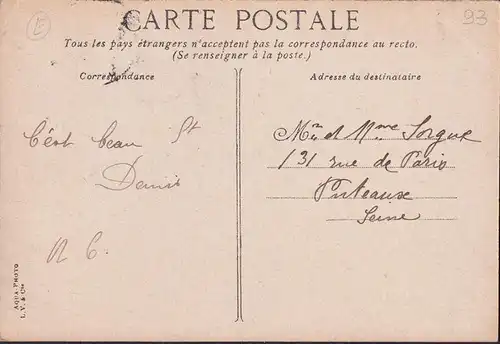 E
93
CARTE POSTALE
Tous les pays étrangers n'acceptent pas la correspondance au recto.
(Se renseigner à la poste.)
Correspondance
Adresse du destinataire
C'est beau St
Denis
R C.
Mr et Mme Sorgue
131 rue de Paris
Puteaux
Seine
AQUA-PHOTO
L. V. & Cie